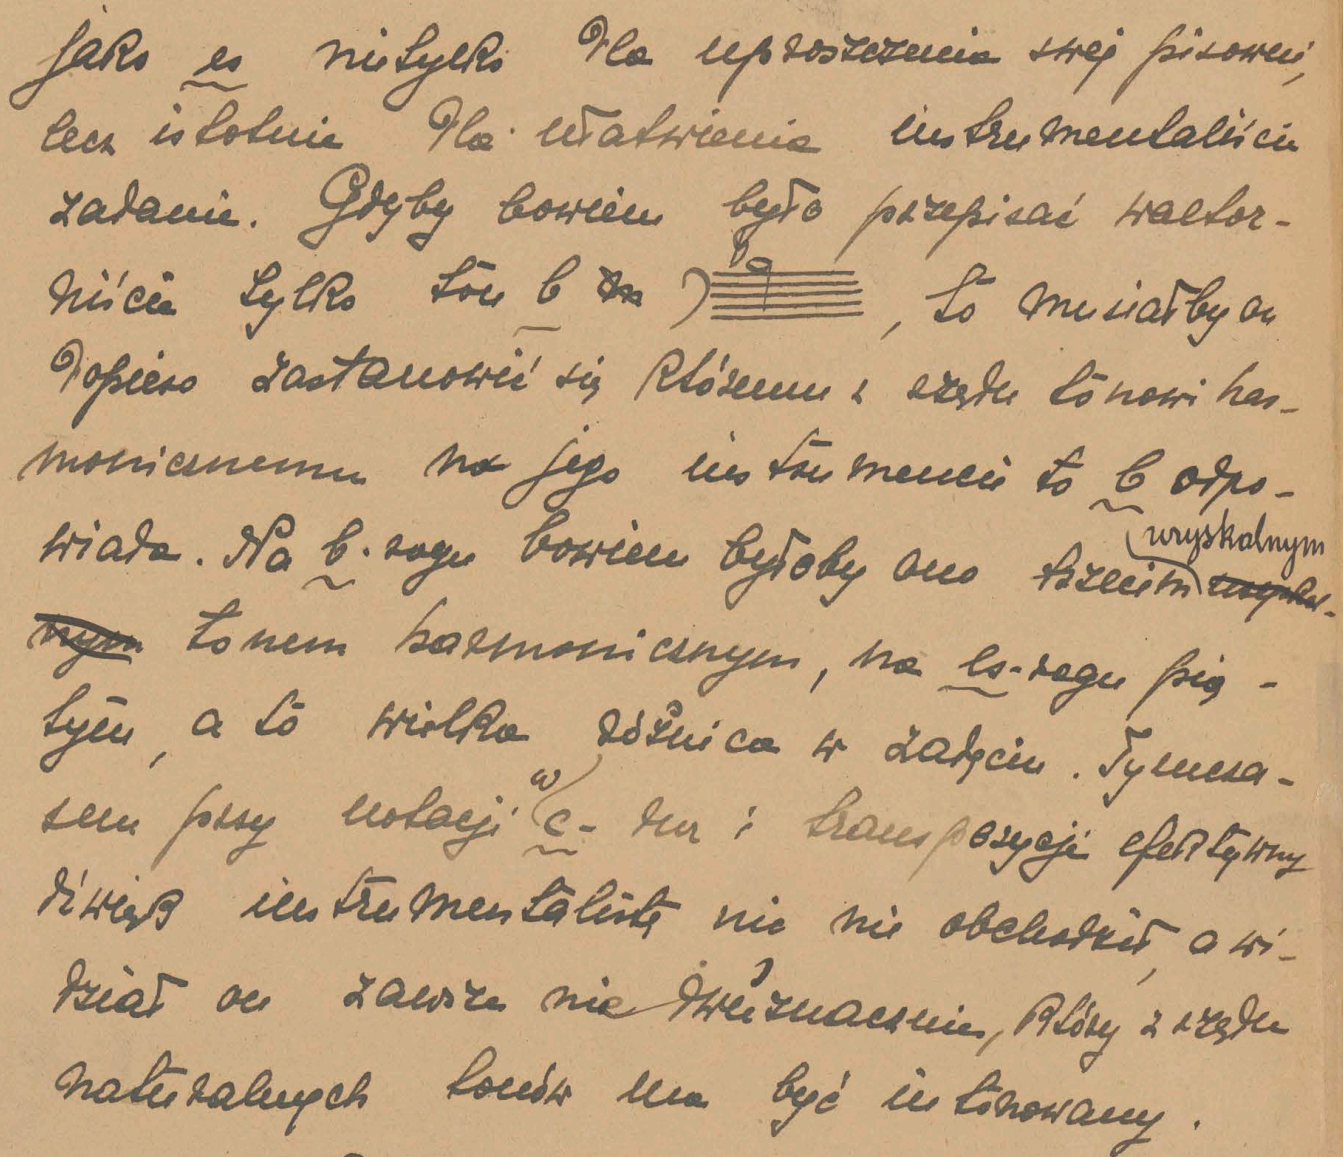 jako es nietylko dla uproszczenia swej pisowni,
lecz istotnie dla ułatwienia instrumentaliście
zadania. Gdyby bowiem było przepisać waltor-
niście tylko ton b , to musiałby on
dopiero zastanowić się któremu z rzędu tonowi har-
monicznemu na jego instrumencie to b odpo-
wiada. Na b-rogu bowiem byłoby ono trzecim uzyskalnym
tonem harmonicznym, na es-rogu pią-
tym, a to wielka różnica w zadęciu. Tymcza-
sem przy notacji w c-dur i transpozycji efektywny
dźwięk instrumentalistę nic nie obchodził, a wi-
dział on zawsze niedwuznacznie, który z rzędu
naturalnych tonów ma być intonowany.